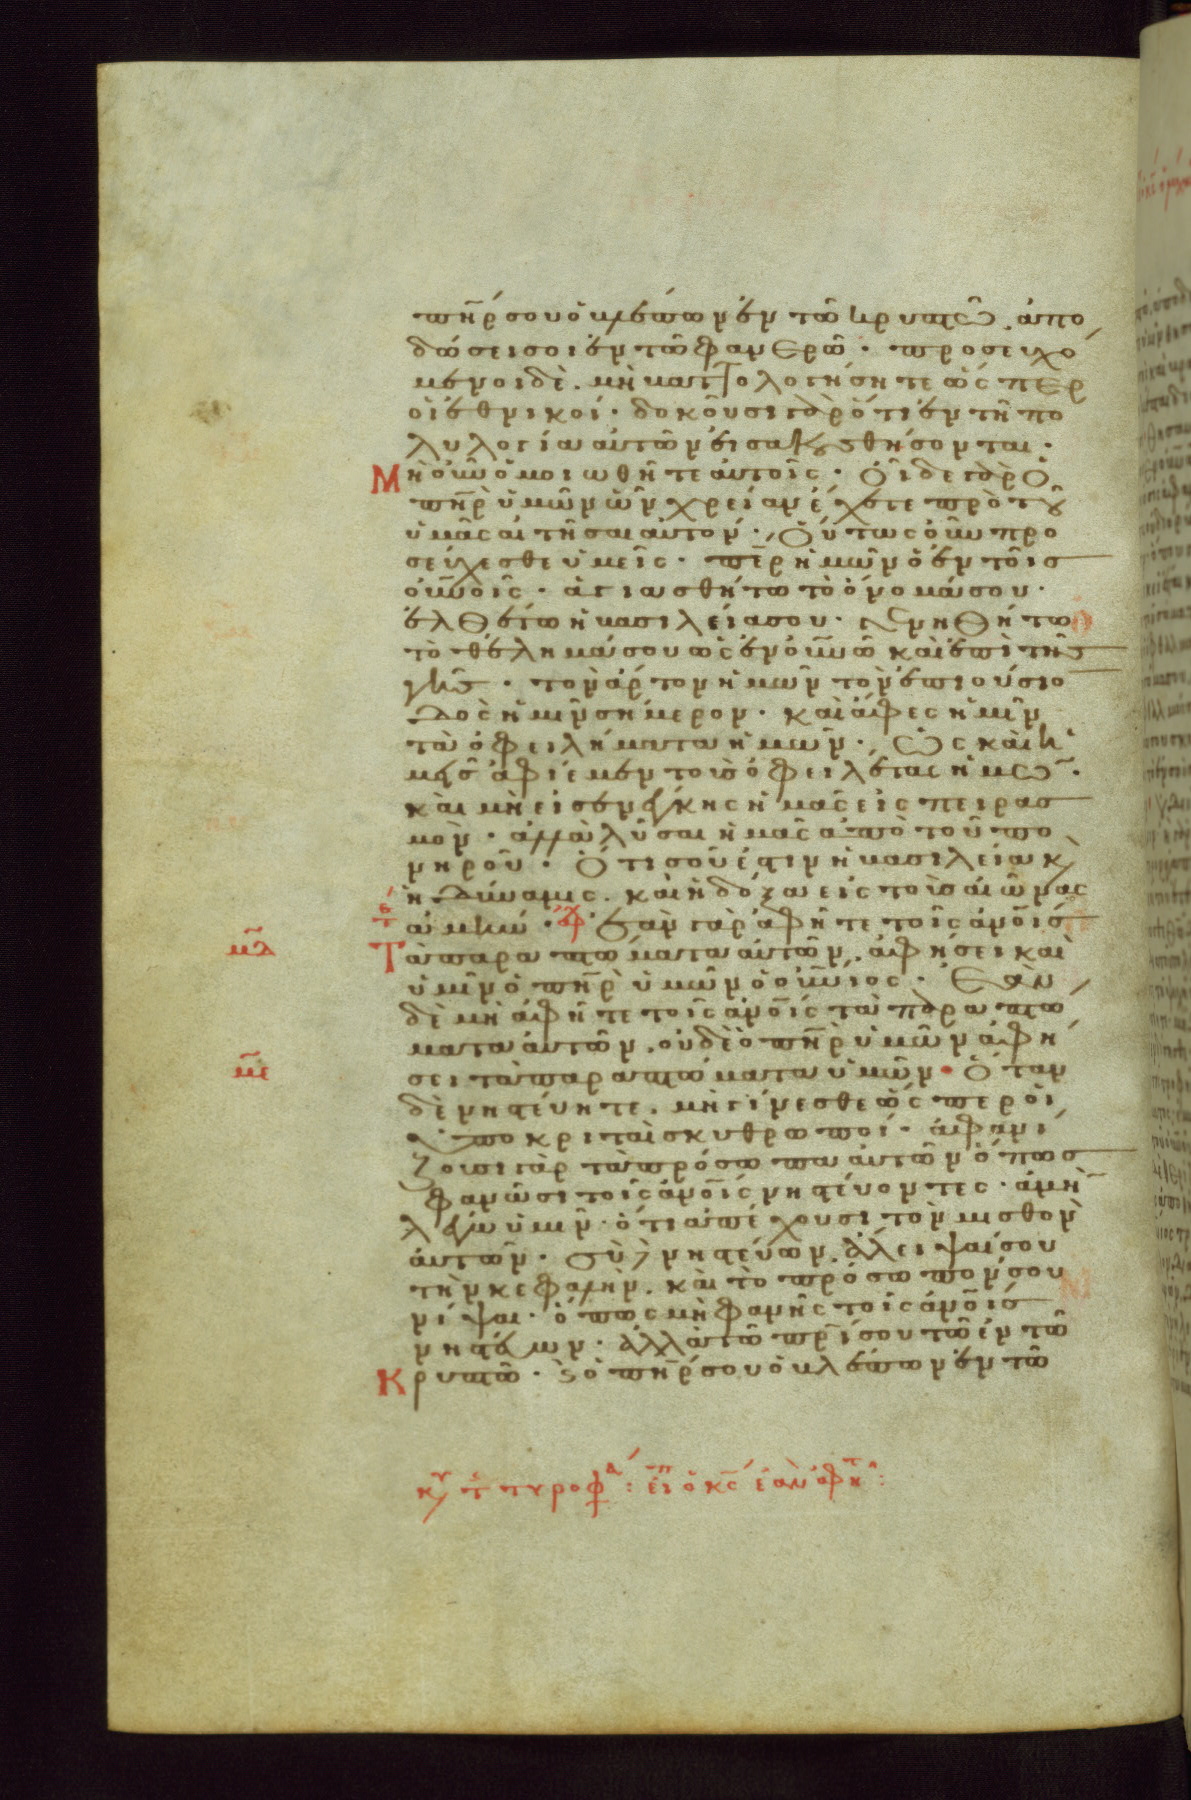 πη̅ρ σου ὁ βλέπων ἐν τῶ κρυπτῶ ἀπο
δώσει σοι ἐν τῶ φανερῶ · προσευχό
μενοι δὲ . μὴ βαττολογήσητε ὥσπερ
οἱ ἐθνικοί · δοκοῦσι γὰρ ὅτι ἐν τῆ πο
λυλογία αὐτῶν εἰσακουσθήσονται ·
Μὴ οὖν ὁμοιωθῆτε αὐτοῖς · Οἶδε γὰρ ὁ
πη̅ρ ὑμῶν ὧν χρείαν ἔχετε πρὸ τοῦ
ὑμᾶς αἰτῆσαι αὐτόν · Οὕτως οὖν προ
σεύχεσθε ὑμεῖς · πε̅ρ ἡμῶν ὁ ἐν τοῖς
οὐ̅νοις · ἁγιασθήτω τὸ ὄνομά σου ·
ἐλθέτω ἡ βασιλεία σου · γενηθήτω
τὸ θέλημά σου ὡς ἐν οὐ̅νῶ καὶ ἐπὶ τῆς
γῆς · τὸν ἄρτον ἡμῶν τὸν ἐπιούσιο
δὸς ἡμῖν σήμερον · καὶ ἄφες ἡμῖν
τὰ ὀφειλήματα ἡμῶν · ὡς καὶ ἡ
μεῖς ἀφίεμεν τοῖς ὀφειλέταις ἡμῶ̅ ·
καὶ μὴ εἰσενέγκης ἡμᾶς εἰς πειρασ
μὸν · ἀλλὰ λῦσαι ἡμᾶς ἀπὸ τοῦ πο
νηροῦ · Ὅτι σοῦ ἐστιν ἡ βασιλεία κ
ἡ δύναμις . καὶ ἡ δόξα εἰς τοὺς αἰῶνας
ἀμήν · ἀρχ Ἐὰν γὰρ ἀφῆτε τοῖς ἀν̅οις
μδ Τὰ παραπτώματα αὐτῶν . ἀφήσει καὶ
ὑμῖν ὁ πη̅ρ ὑμῶν ὁ οὐ̅νιος · Ἐὰν
δὲ μὴ ἀφῆτε τοῖς ἀν̅οις τὰ παραπτώ
ματα αὐτῶν . οὐδὲ ὁ πη̅ρ ὑμῶν ἀφή
με σει τὰ παραπτώματα ὑμῶν · Ὅταν
δὲ νηστεύητε . μὴ γίνεσθε ὥσπερ οἱ
ὑποκριταὶ σκυθρωποί · ἀφανί
ζουσι γὰρ τὰ πρόσωπα αὐτῶν ὅπως
φανῶσι τοῖς ἀν̅οις νηστεύοντες · ἀμὴ
λέγω ὑμῖν · ὅτι ἀπέχουσι τὸν μισθὸν
αὐτῶν · σὺ δὲ νηστεύων . ἄλειψαί σου
τὴν κεφαλὴν . καὶ τὸ πρόσωπόν σου
νίψαι · ὅπως μὴ φανῆς τοῖς ἀν̅οις
νηστεύων · ἀλλὰ τῶ πρ̅ι σου τῶ ἐν τῶ
Κρυπτῶ · καὶ ὁ πη̅ρ σου ὁ βλέπων ἐν τῶ
κυ τ τυροφ : εἶπ ὁ κς ἐὰν ἀφητ :